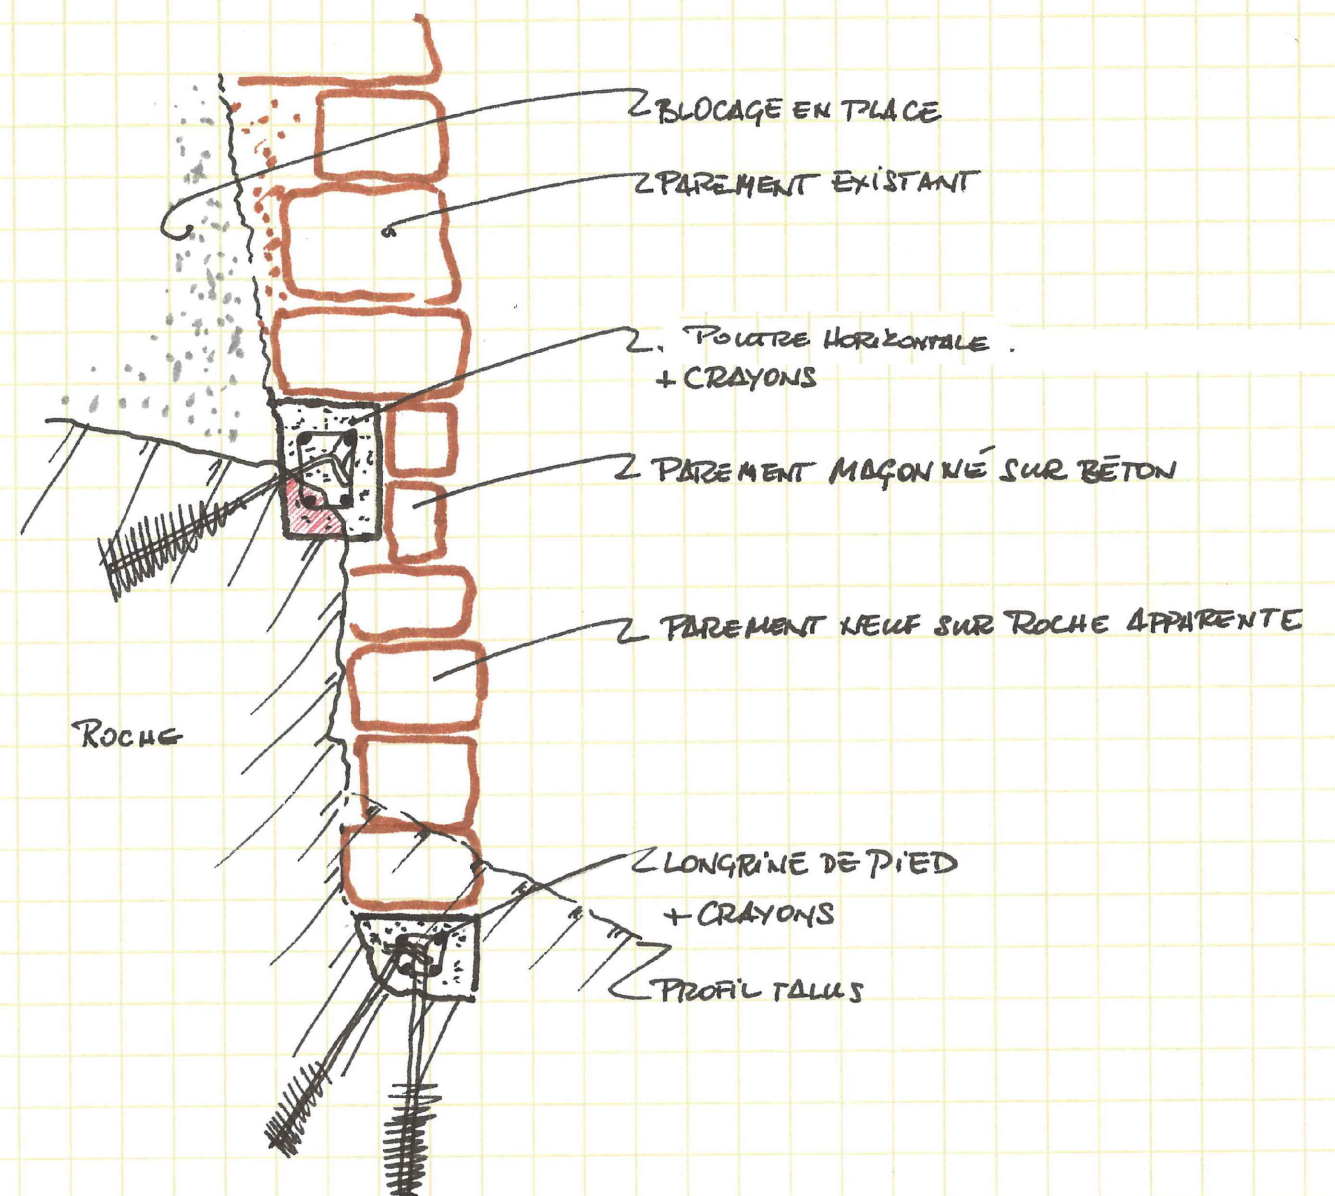 BLOCAGE EN PLACE
PAREMENT EXISTANT
POUTRE HORIZONTALE.
+ CRAYONS
PAREMENT MAÇONNÉ SUR BÉTON
PAREMENT NEUF SUR ROCHE APPARENTE
ROCHE
LONGRINE DE PIED
+ CRAYONS
PROFIL TALUS